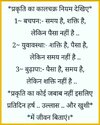 "प्रकृति का कालचक्र नियम देखिए"
1– बचपनः- समय है, शक्ति है,
लेकिन पैसा नहीं है ..
2– युवावस्थाः- शक्ति है, पैसा है,
लेकिन समय नहीं है ..
3– बुढ़ापाः- पैसा है, समय है,
लेकिन शक्ति नहीं है ..
"प्रकृति का कोई जवाब नहीं इसलिए
प्रतिदिन हर्ष .. उल्लास .. और खुशी"
"में जीवन बिताएं।"